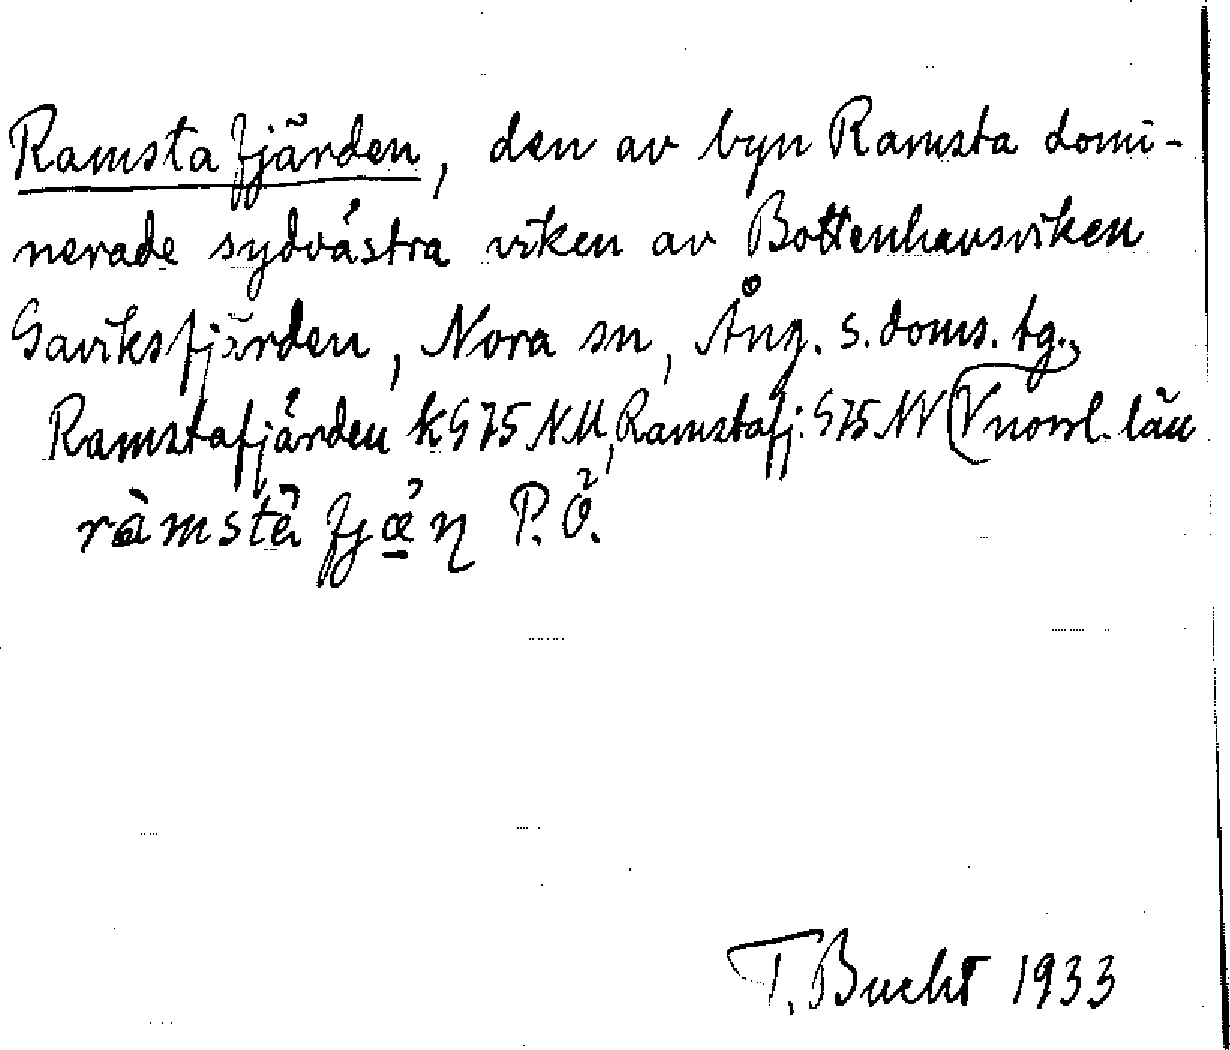 Ramstafjärden, den av byn Ramsta domi-
nerade sydvästra viken av Bottenhavsviken
Gaviksfjärden, Nora sn, Ång. s. doms. tg.,
Ramstafjärden k 575 NU, Ramstafj. 575 NV (Vnorrl. län
ràmstè fjǽ̱n P.Ö.
T. Bucht 1933